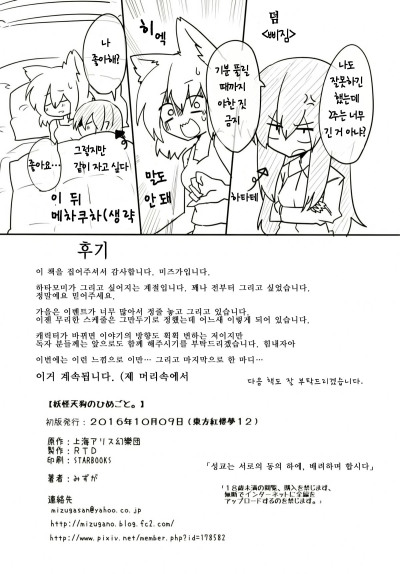 덤
<삐짐>
나도
잘못하긴
했는데
2주는 너무
긴 거 아냐?
하타테
히엑
기분 풀릴
때까지
야한 짓
금지
말도
안 돼
나
좋아해?
좋아요…
그렇지만
같이 자고 싶다
이 뒤
메차쿠차(생략
후기
이 책을 집어주셔서 감사합니다. 미즈가입니다.
하타모미가 그리고 싶어지는 계절입니다. 꽤나 전부터 그리고 싶었습니다.
정말이에요 믿어주세요.
가을은 이벤트가 너무 많아서 정줄 놓고 그리고 있습니다.
이젠 무리한 스케줄은 그만두기로 정했는데 어느새 이렇게 되어 있습니다.
캐릭터가 바뀌면 이야기의 방향도 휙휙 변하는 저이지만
독자 분들께는 앞으로도 함께 해주시기를 부탁드리겠습니다. 힘내자아
이번에는 이런 느낌으로 이만… 그리고 마지막으로 한 마디…
이거 계속됩니다. (제 머리속에서
다음 책도 잘 부탁드리겠습니다.
【妖怪天狗のひめごと。】
初版発行：2016年10月09日(東方紅楼夢12)
原作：上海アリス幻樂団
製作：RTD
印刷：STARBOOKS
著者：みずが
「성교는 서로의 동의 하에, 배려하며 합시다」
「18歳未満の閲覧、購入を禁じます、
無断でインターネットに全編を
アップロードするのを禁じます。」
連絡先
mizugasan@yahoo.co.jp
http://mizugano.blog.fc2.com/
http://www.pixiv.net/member.php?id=178582